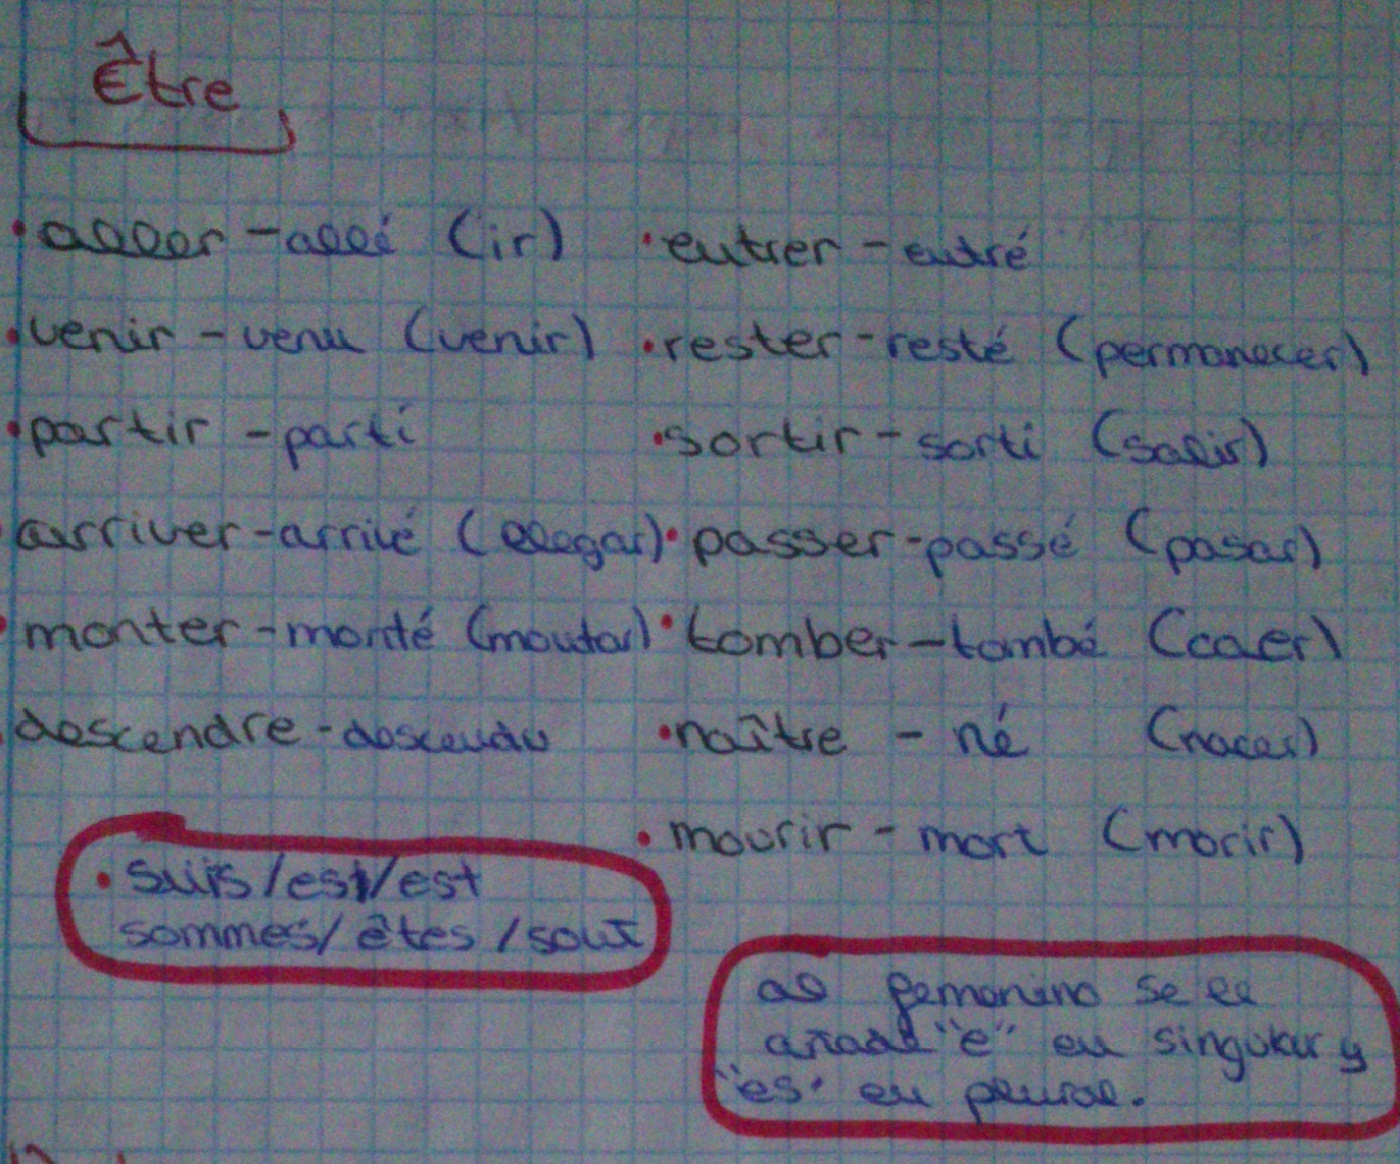 Être
• aller - allé (ir)
• venir - venu (venir)
• partir - parti
arriver - arrivé (llegar)
• monter - monté (montar)
• descendre - descendu
• entrer - entré
• rester - resté (permanecer)
• sortir - sorti (salir)
• passer - passé (pasar)
• tomber - tombé (caer)
• naître - né (nacer)
• mourir - mort (morir)
• suis/est/est
sommes/êtes/sont
al femenino se le
añade "e" en singular y
"es" en plural.